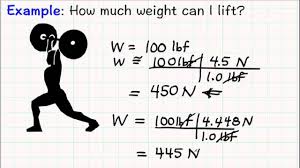 Example: How much weight can I lift?
W = 100 lbf
W ≅ 100 lbf | 4.5 N
1.0 lbf
= 450 N ←
W = 100 lbf | 4.448 N
1.0 lbf
= 445 N